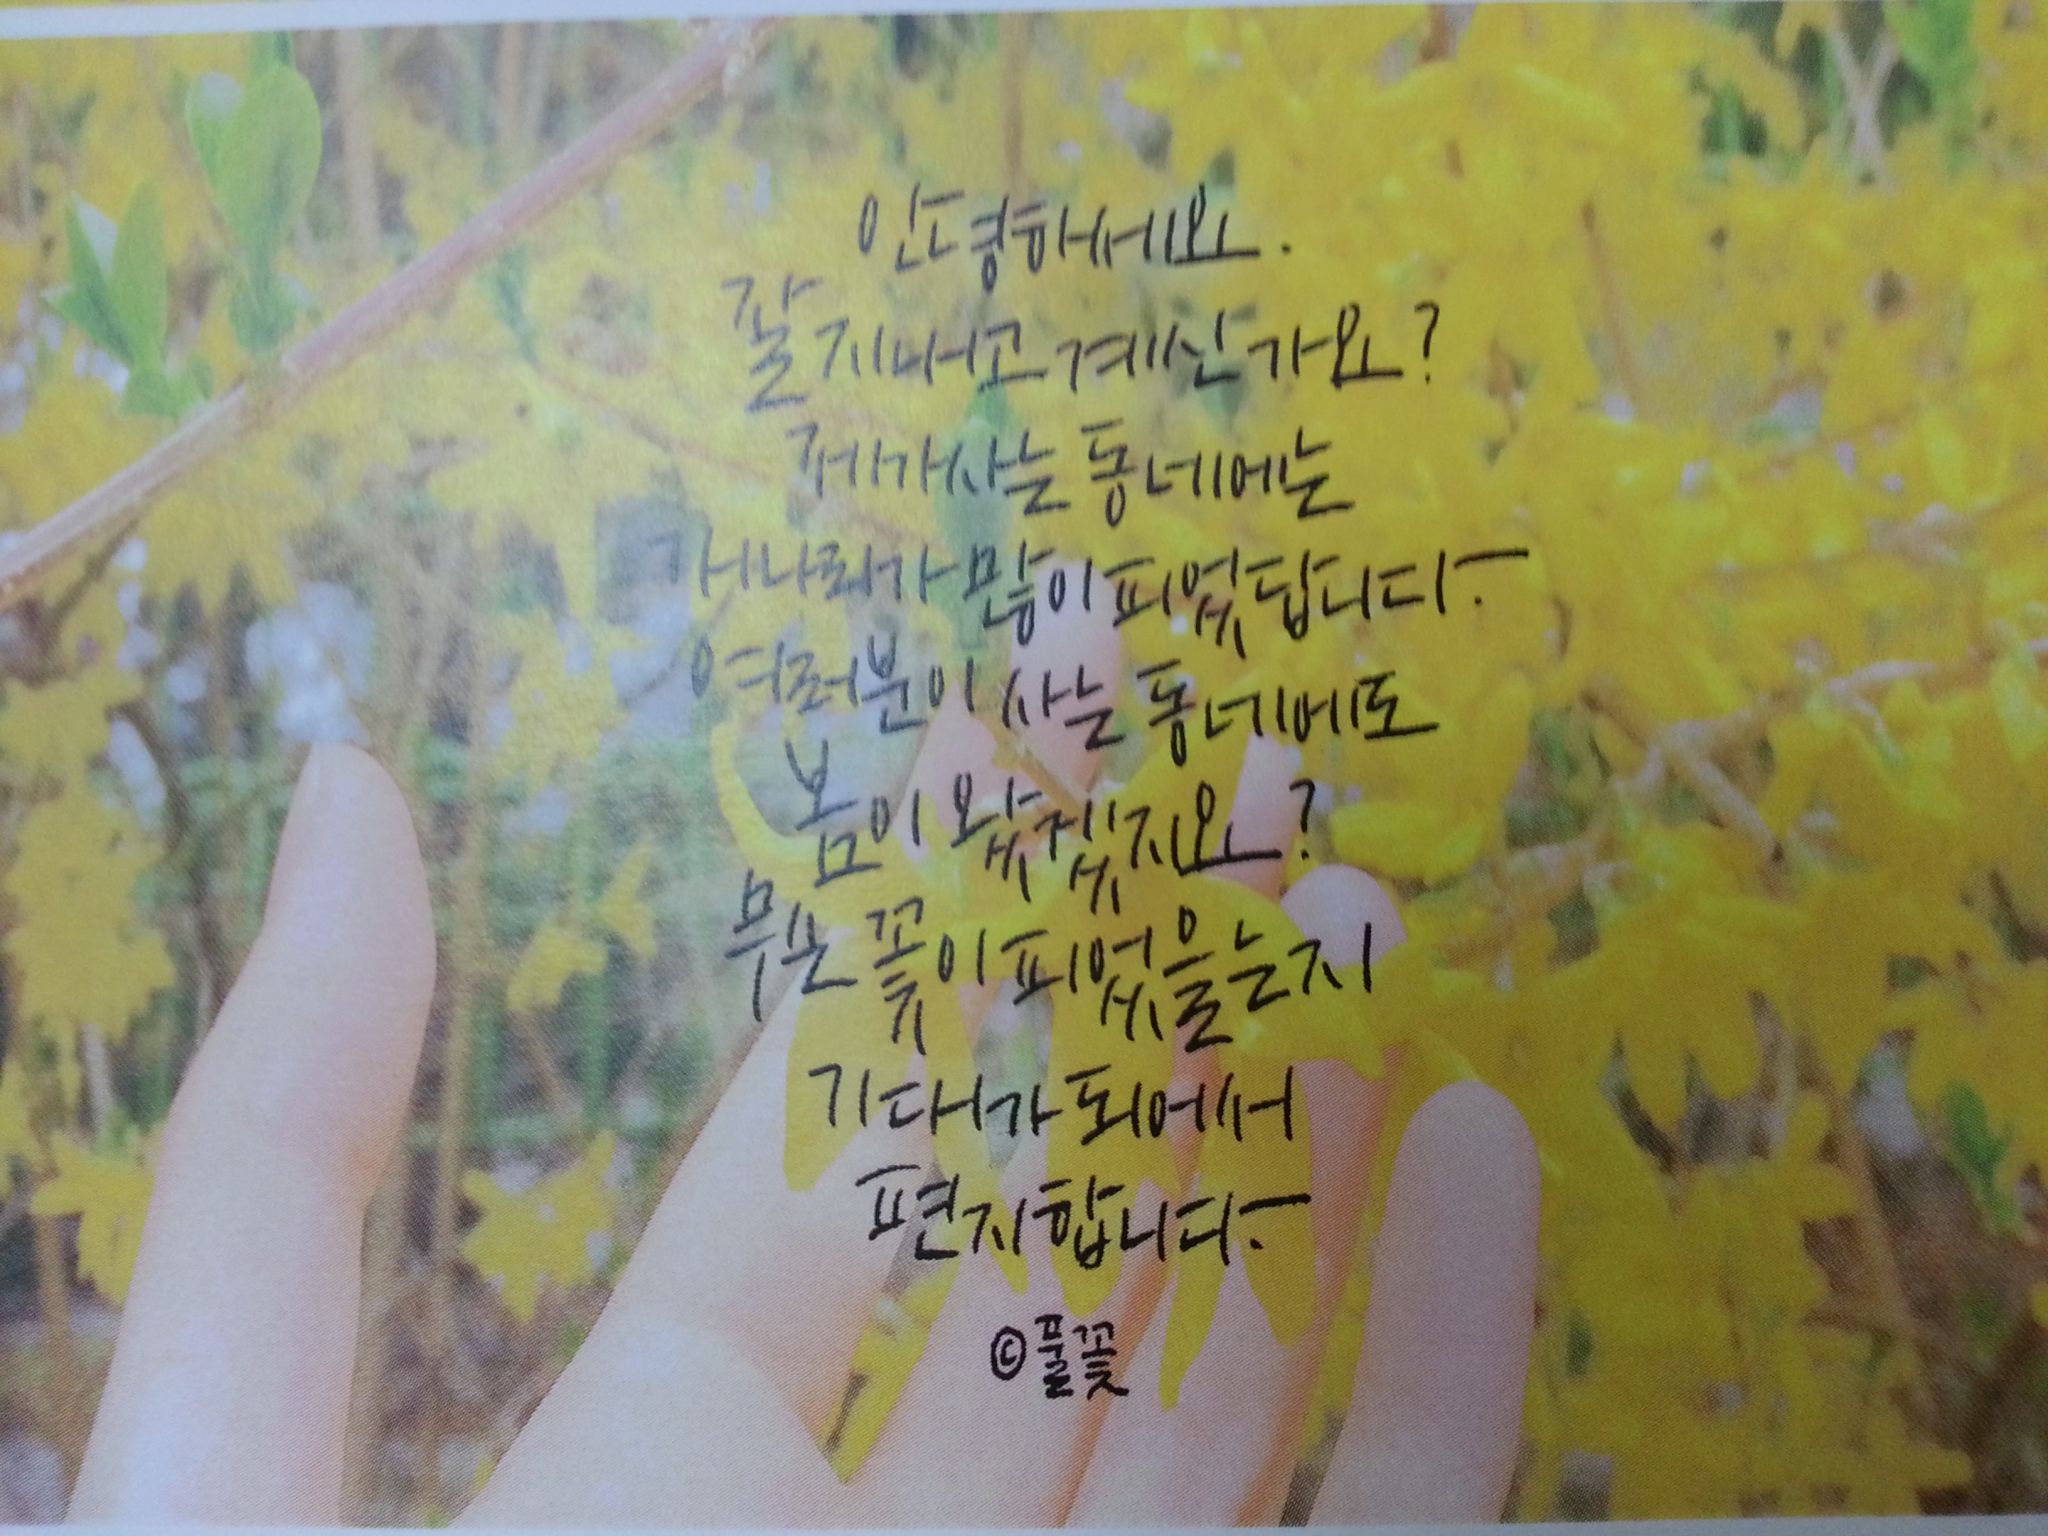 안녕하세요.
잘 지내고 계신가요?
제가 사는 동네에는
개나리가 많이 피었답니다-
여러분이 사는 동네에도
봄이 왔겠지요?
무슨 꽃이 피었을는지
기대가 되어서
편지합니다-
©풀꽃